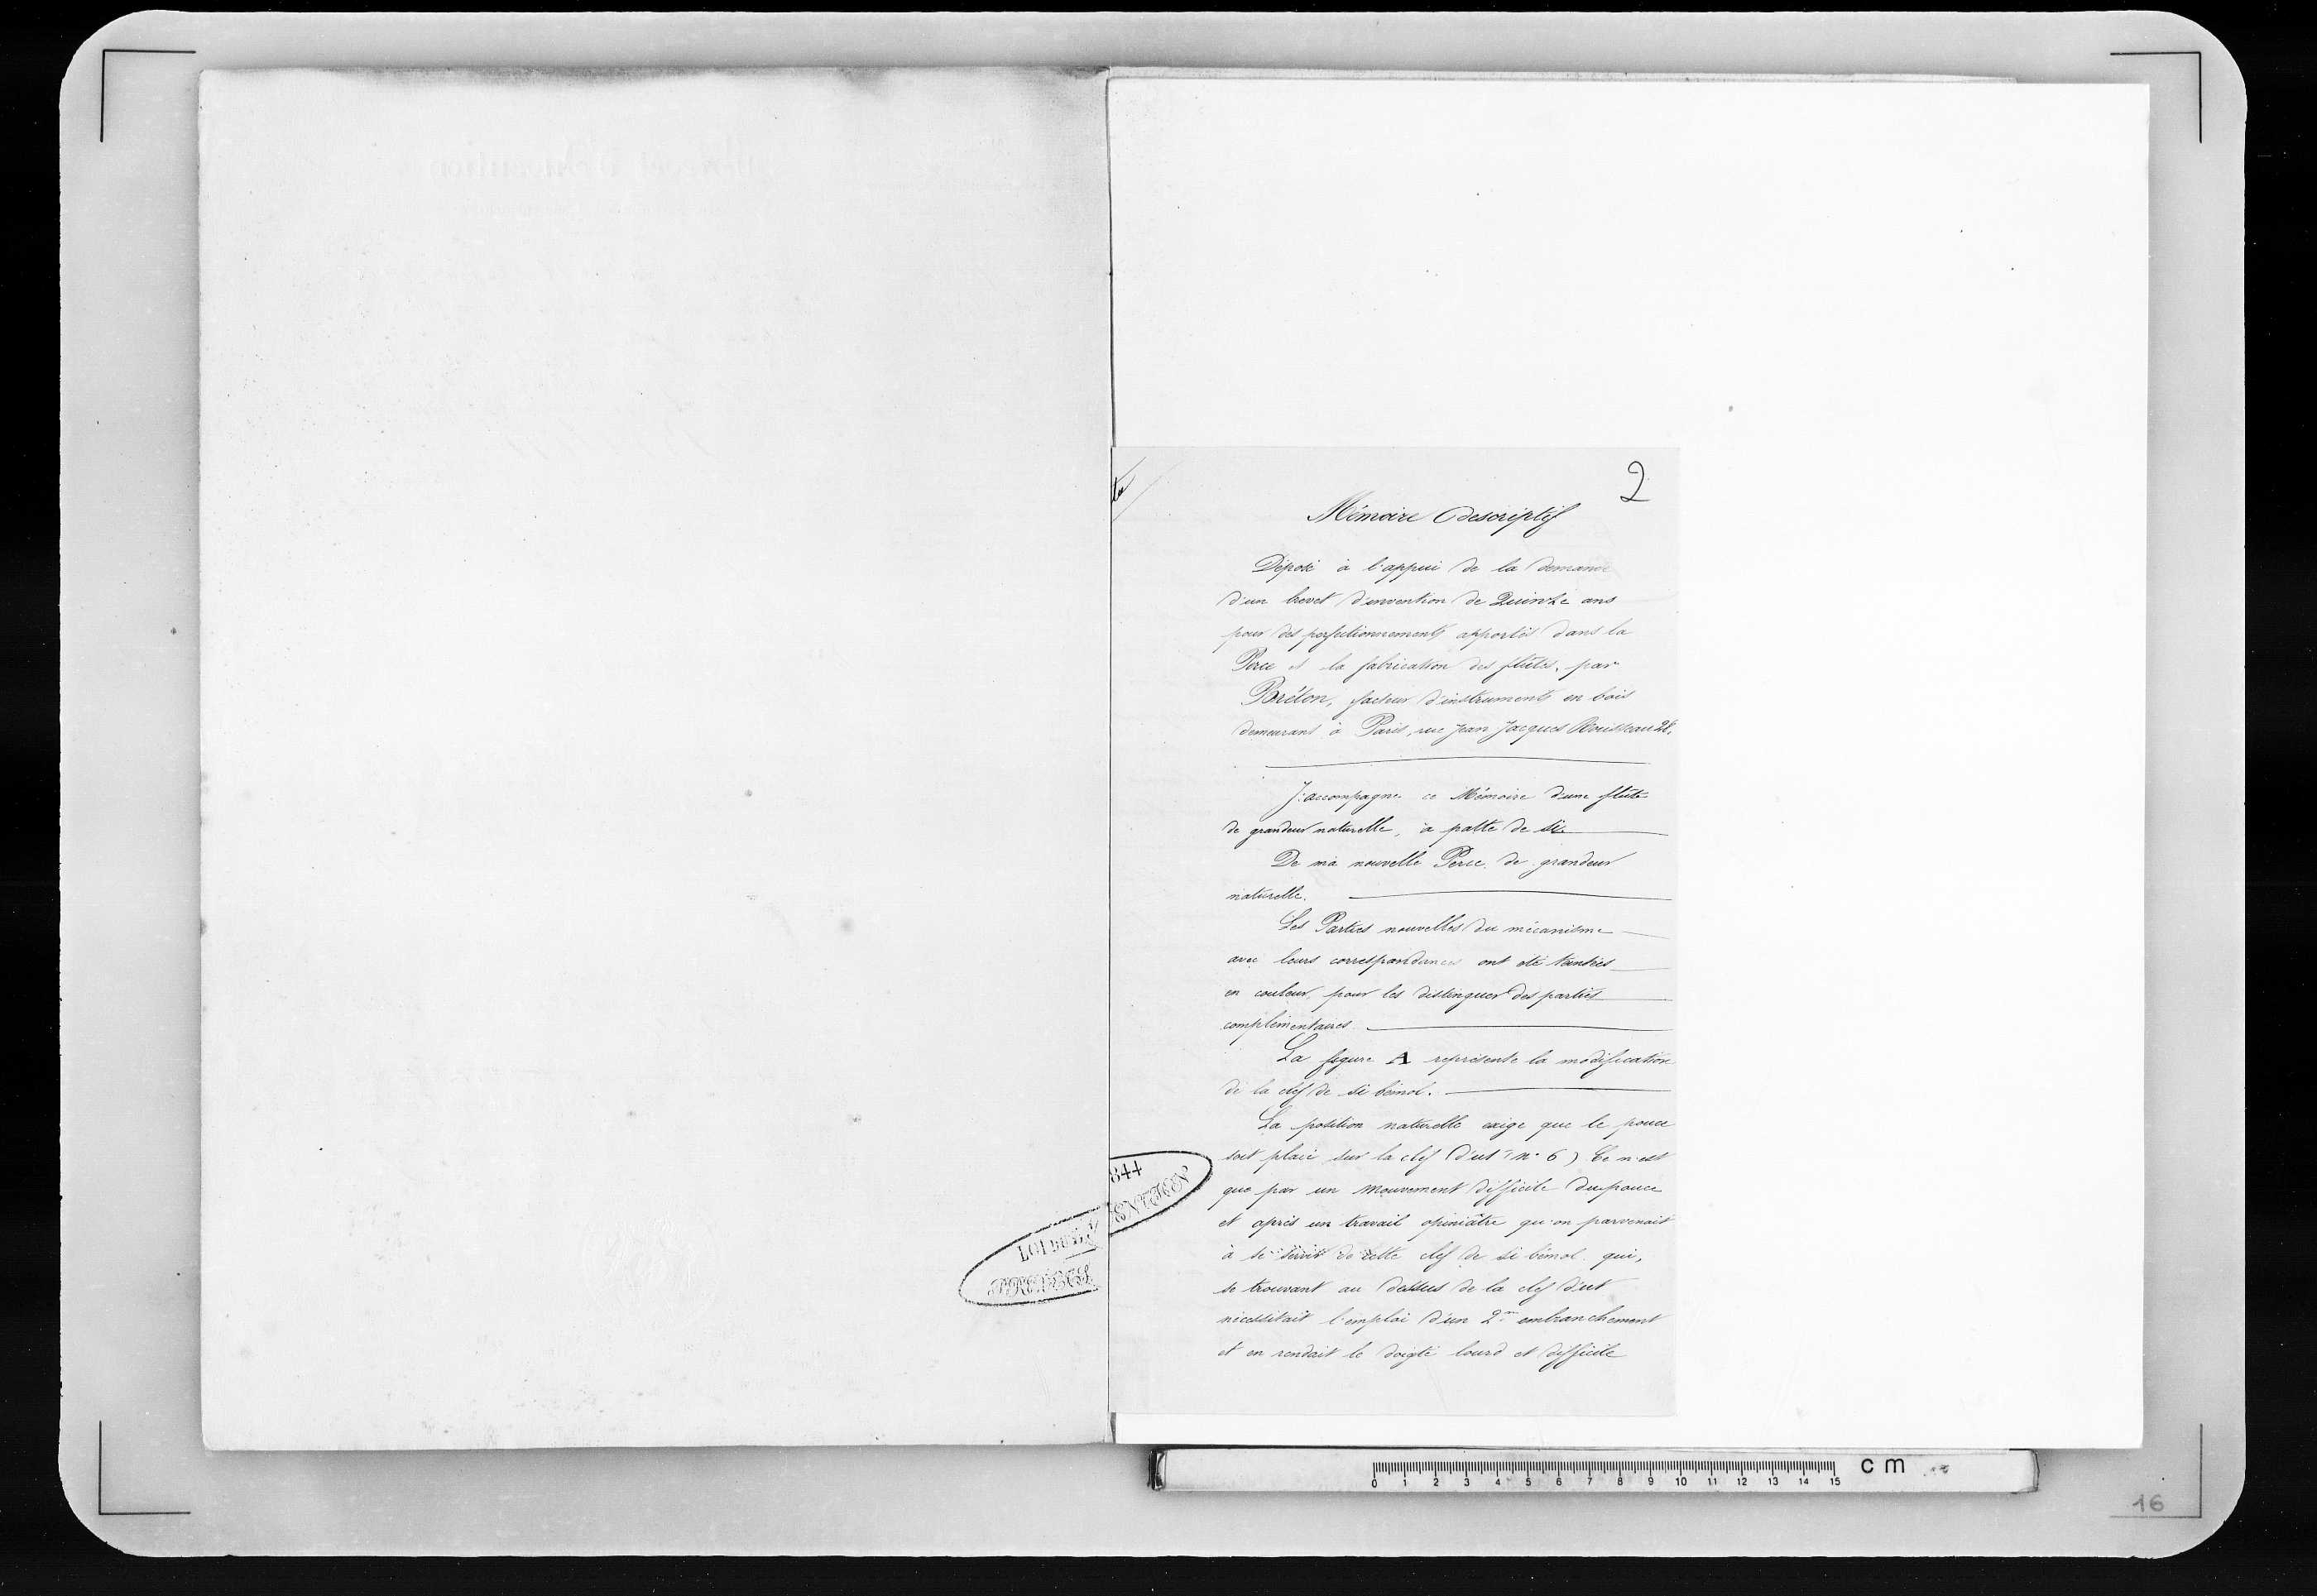 2
Mémoire descriptif
Déposé à l'appui de la demande
d'un brevet d'invention de Quinze ans
pour des perfectionnements apportés dans la
Perce et la fabrication des flûtes, par
Bréton, facteur d'instruments en bois
demeurant à Paris, rue Jean Jacques Rousseau
J'accompagne ce Mémoire d'une flûte
de grandeur naturelle, à patte de si
De ma nouvelle Perce de grandeur
naturelle.
Les Parties nouvelles du mécanisme
avec leurs correspondances ont été teintées
en couleur, pour les distinguer des parties
complémentaires
La figure A représente la modification
de la clef de si bémol.
La position naturelle exige que le pouce
soit placé sur la clef d'ut (n° 6) Ce n'est
que par un mouvement difficile du pouce
et après un travail opiniâtre qu'on parvenait
à se servir de cette clef de si bémol qui,
se trouvant au dessus de la clef d'ut
nécessitait l'emploi d'un 2me embranchement
et en rendait le doigté lourd et difficile
844
LOI DU
BREVETS
cm
0 1 2 3 4 5 6 7 8 9 10 11 12 13 14 15
16